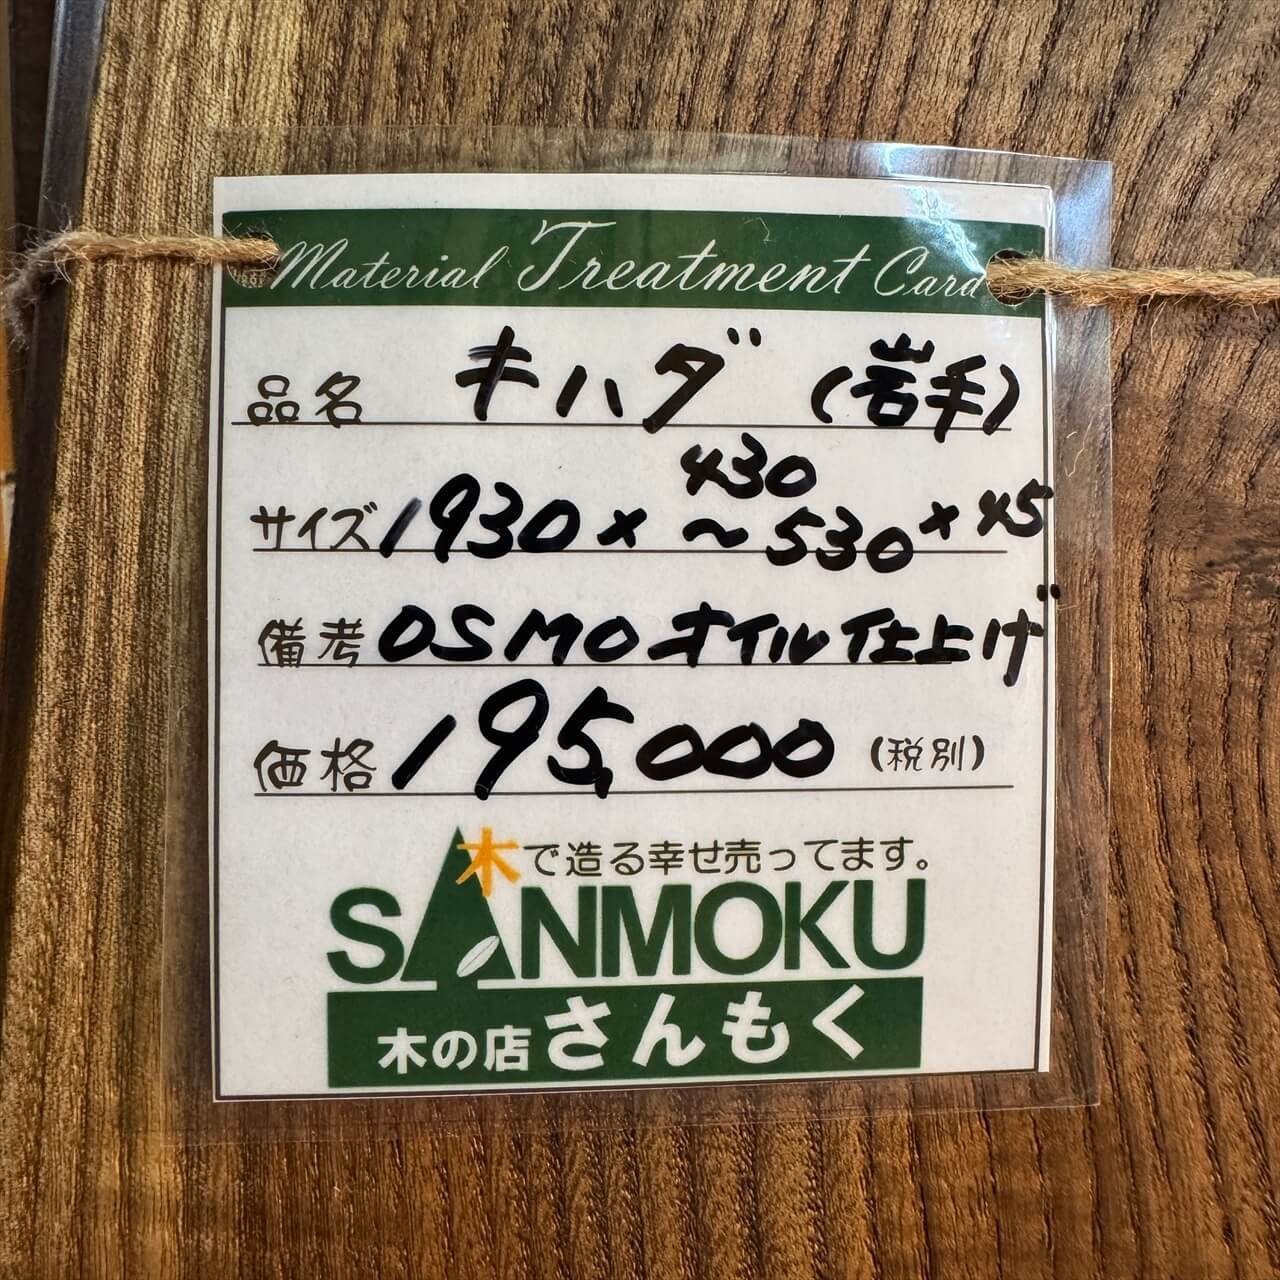 Material Treatment Card
品名 キハダ (岩手)
サイズ 1930 × 430~530 × 45
備考 OSMOオイル仕上げ
価格 195,000 (税別)
木で造る幸せ売ってます。
SANMOKU
木の店 さんもく